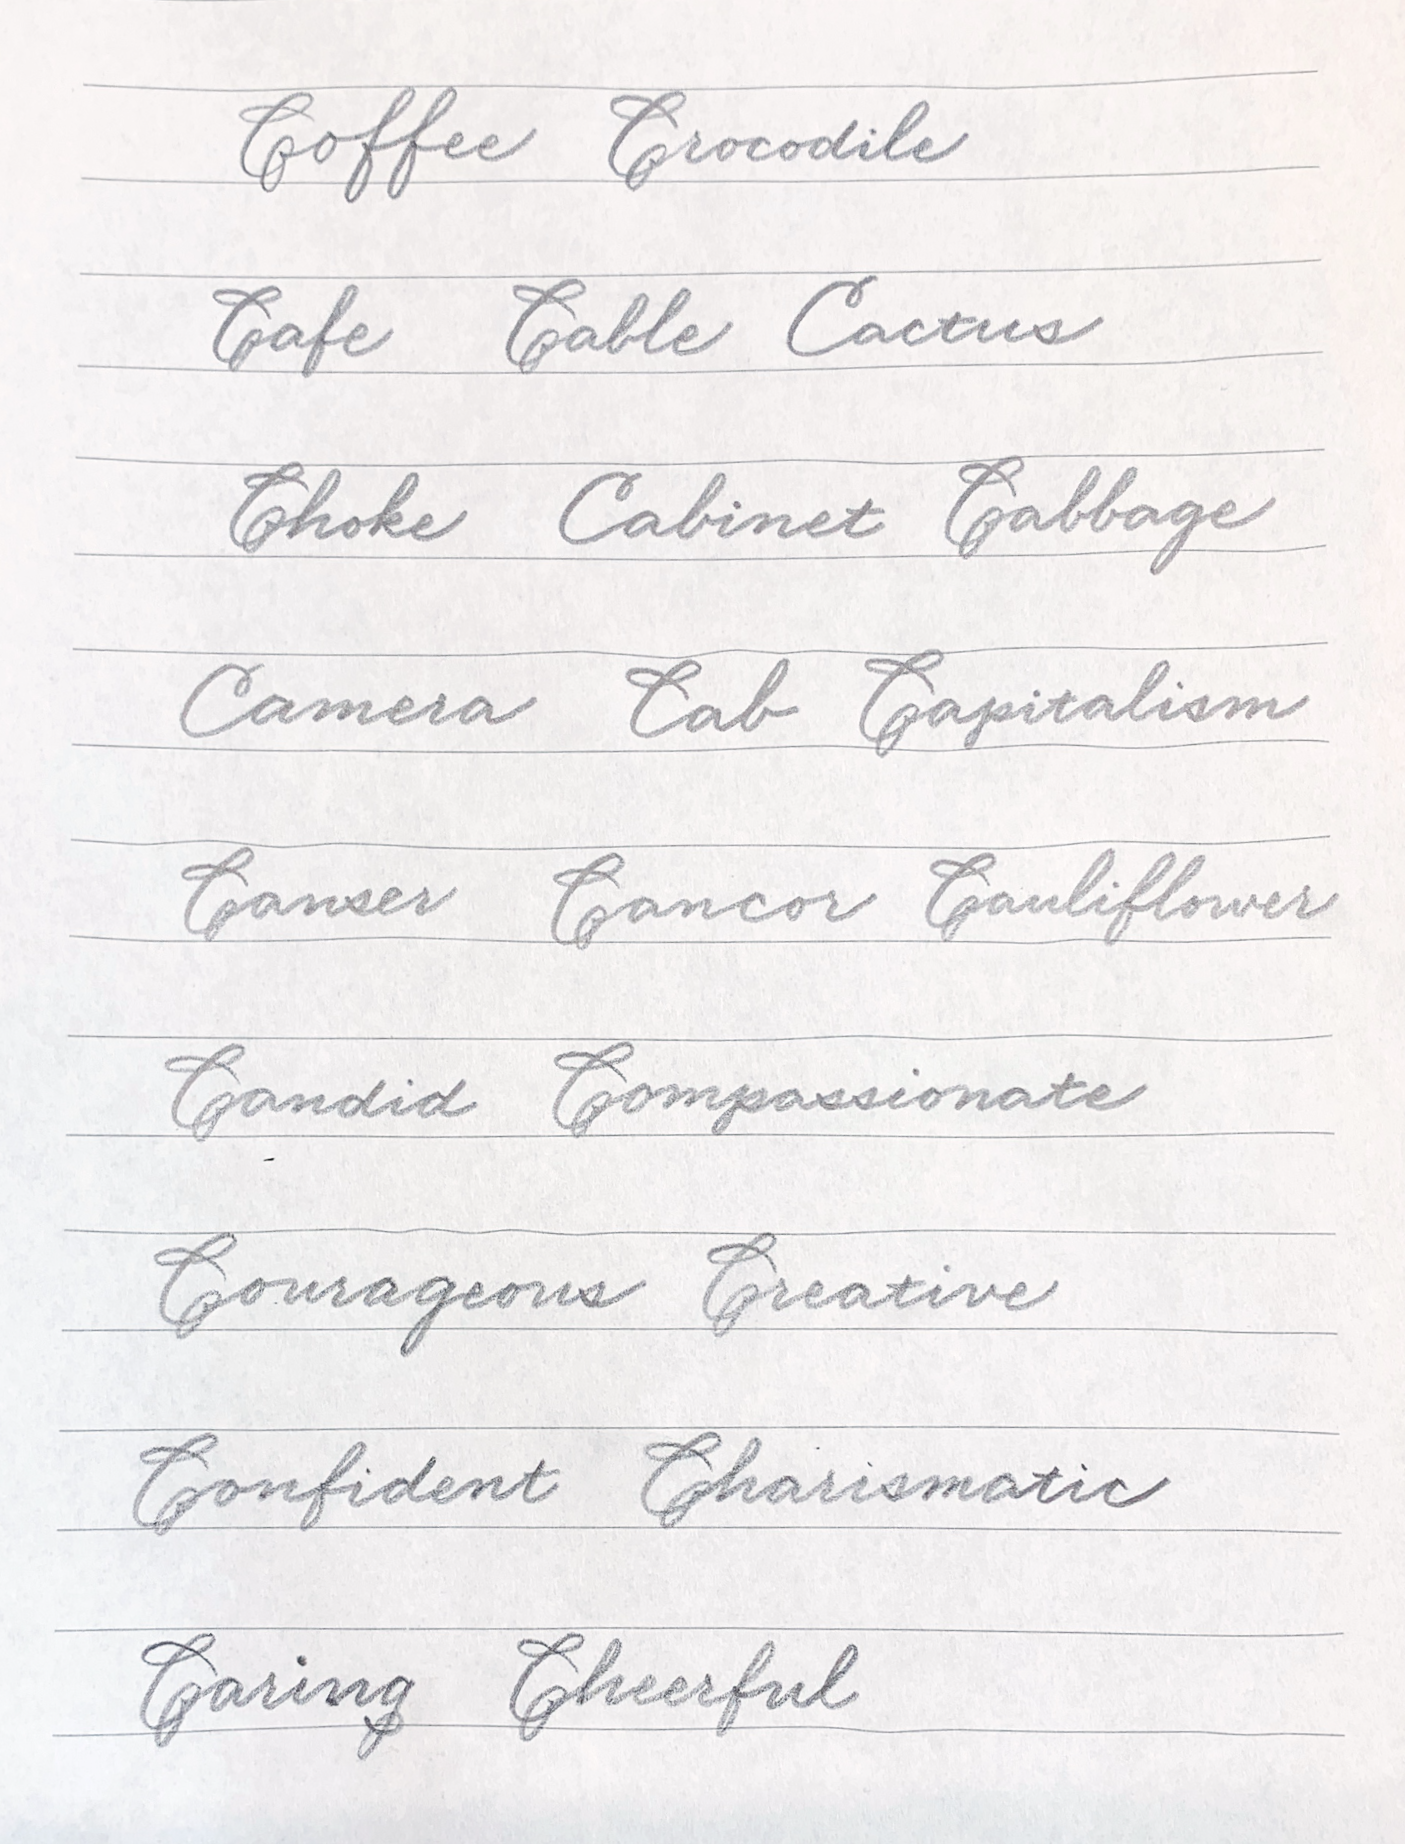 Coffee Crocodile
Cafe Cable Cactus
Choke Cabinet Cabbage
Camera Cab Capitalism
Canser Cancor Cauliflower
Candid Compassionate
Courageous Creative
Confident Charismatic
Caring Cheerful